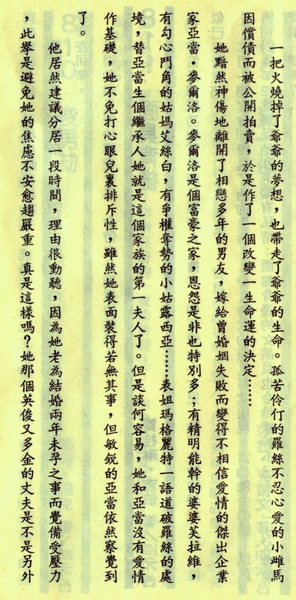 一把火燒掉了爺爺的夢想，也帶走了爺爺的生命。孤苦伶仃的羅絲不忍心愛的小雌馬
因償債而被公開拍賣，於是作了一個改變一生命運的決定……
她黯然神傷地離開了相戀多年的男友，嫁給曾婚姻失敗而變得不相信愛情的傑出企業
家亞當·麥爾洛。麥爾洛是個富豪之家，恩怨是非也特別多；有精明能幹的婆婆芙拉維，
有勾心鬥角的姑媽艾絲白，有爭權奪勢的小姑露西亞……表姐瑪格麗特一語道破羅絲的處
境，替亞當生個繼承人她就是這個家族的第一夫人了。但是談何容易，她和亞當沒有愛情
作基礎，她不免打心眼兒裏排斥性，雖然她表面裝得若無其事，但敏銳的亞當依然察覺到
了。
他居然建議分居一段時間，理由很動聽，因為她老為結婚兩年未孕之事而覺備受壓力
，此舉是避免她的焦慮不安愈趨嚴重。真是這樣嗎？她那個英俊又多金的丈夫是不是另外